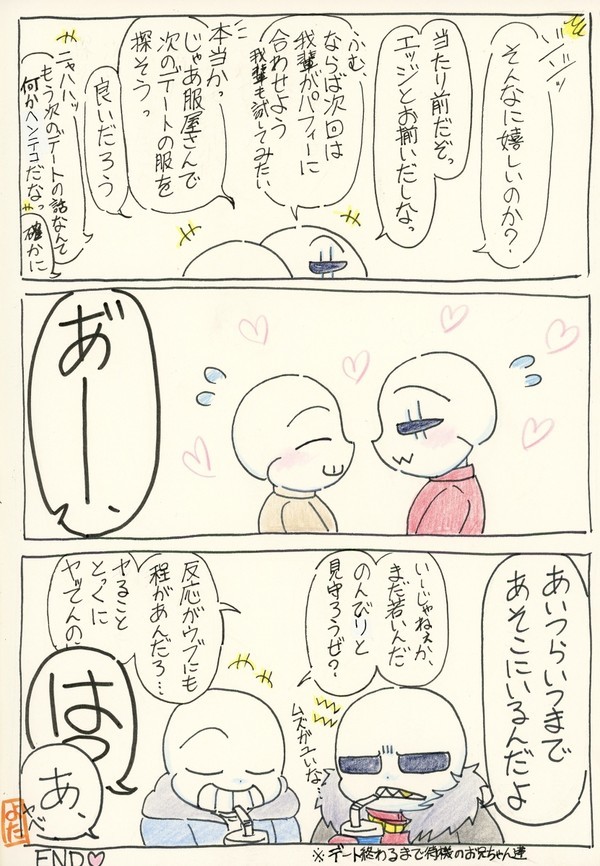 ジジッ
そんなに嬉しいのか？
当たり前だぞっ
エッジとお揃いだしなっ
ふむ、
ならば次回は
我輩がパフィーに
合わせよう
我輩も試してみたい
本当かっ
じゃあ服屋さんで
次のデートの服を
探そうっ
良いだろう
ニャハハッ
もう次のデートの話なんて
何かヘンテコだなっ
確かに
あ゛ーー、
あいつらいつまで
あそこにいるんだよ
いーじゃねぇか、
まだ若いんだ
のんびりと
見守ろうぜ？
ムズがユいな…
反応がウブにも
程があんだろ…
ヤること
とっくに
ヤッてんの
はっ
あ、
ヤベ
よた
END♡
※デート終わるまで待機のお兄ちゃん達